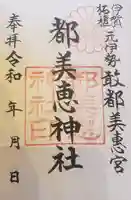 伊賀
柘植
元伊勢敢都美恵宮
都美恵神社
奉拝
令和 年 月 日